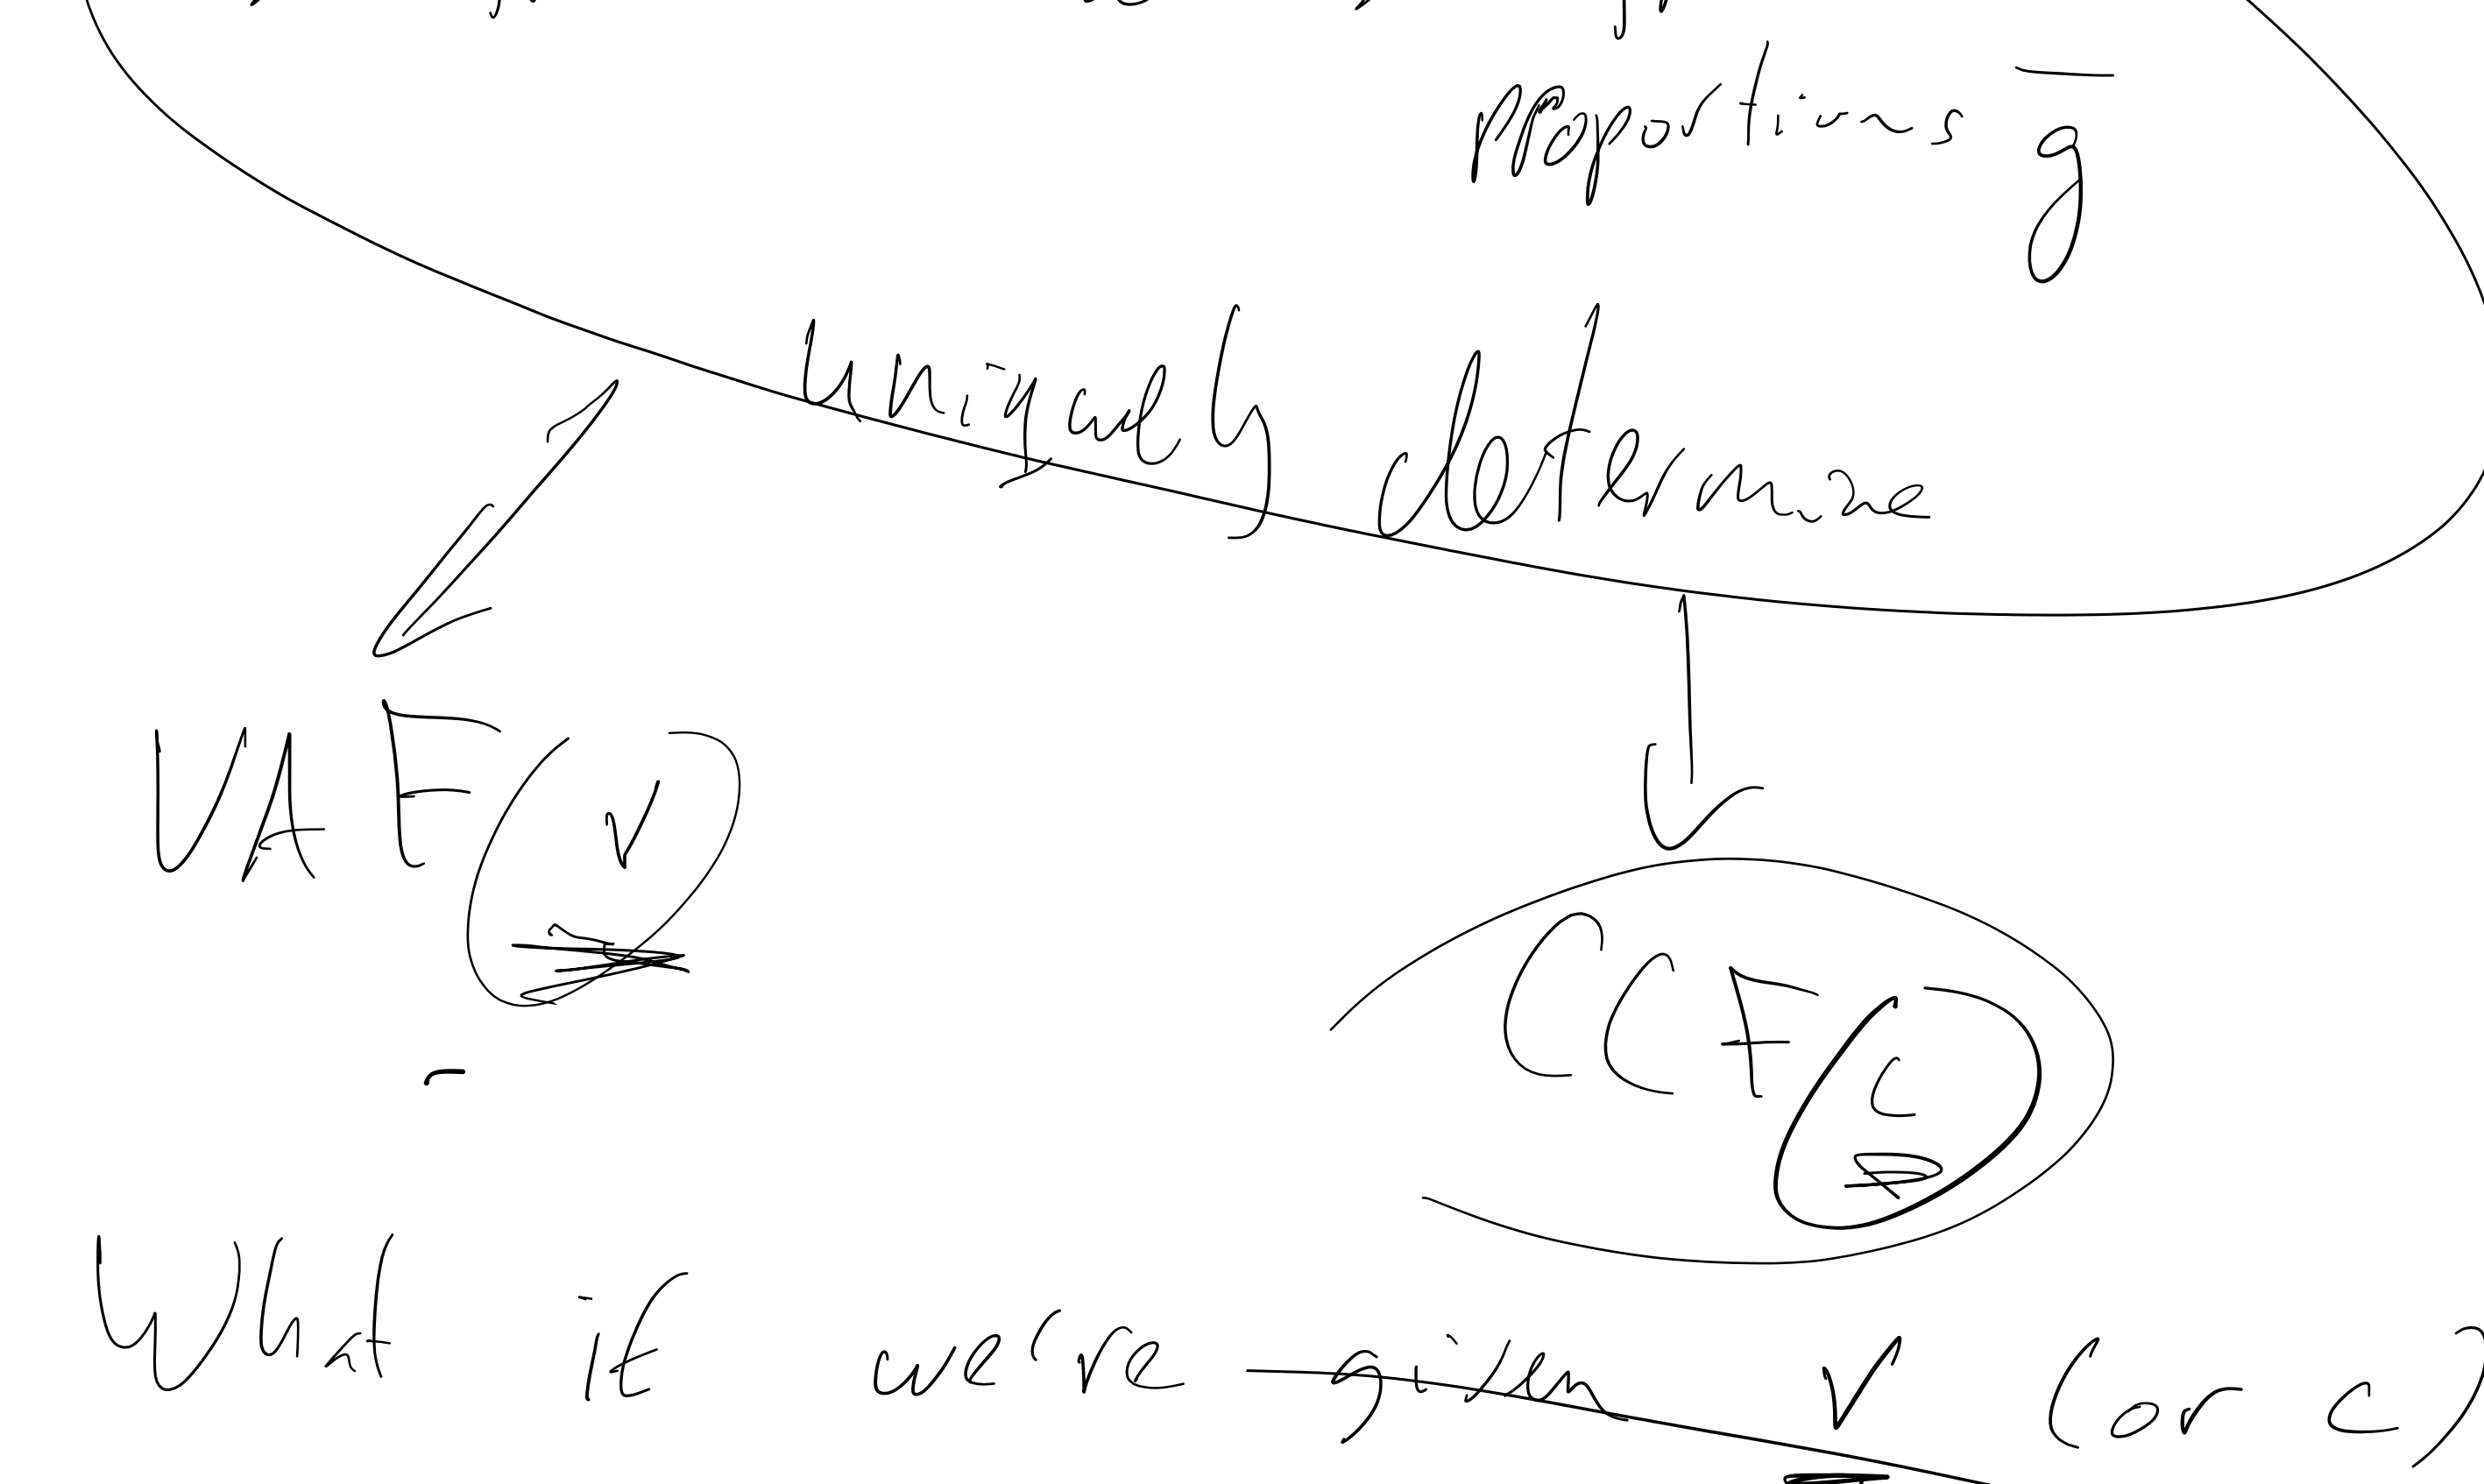 proportions g
uniquely determine
VAF (v)
CCF (c)
What if we're given v (or c)